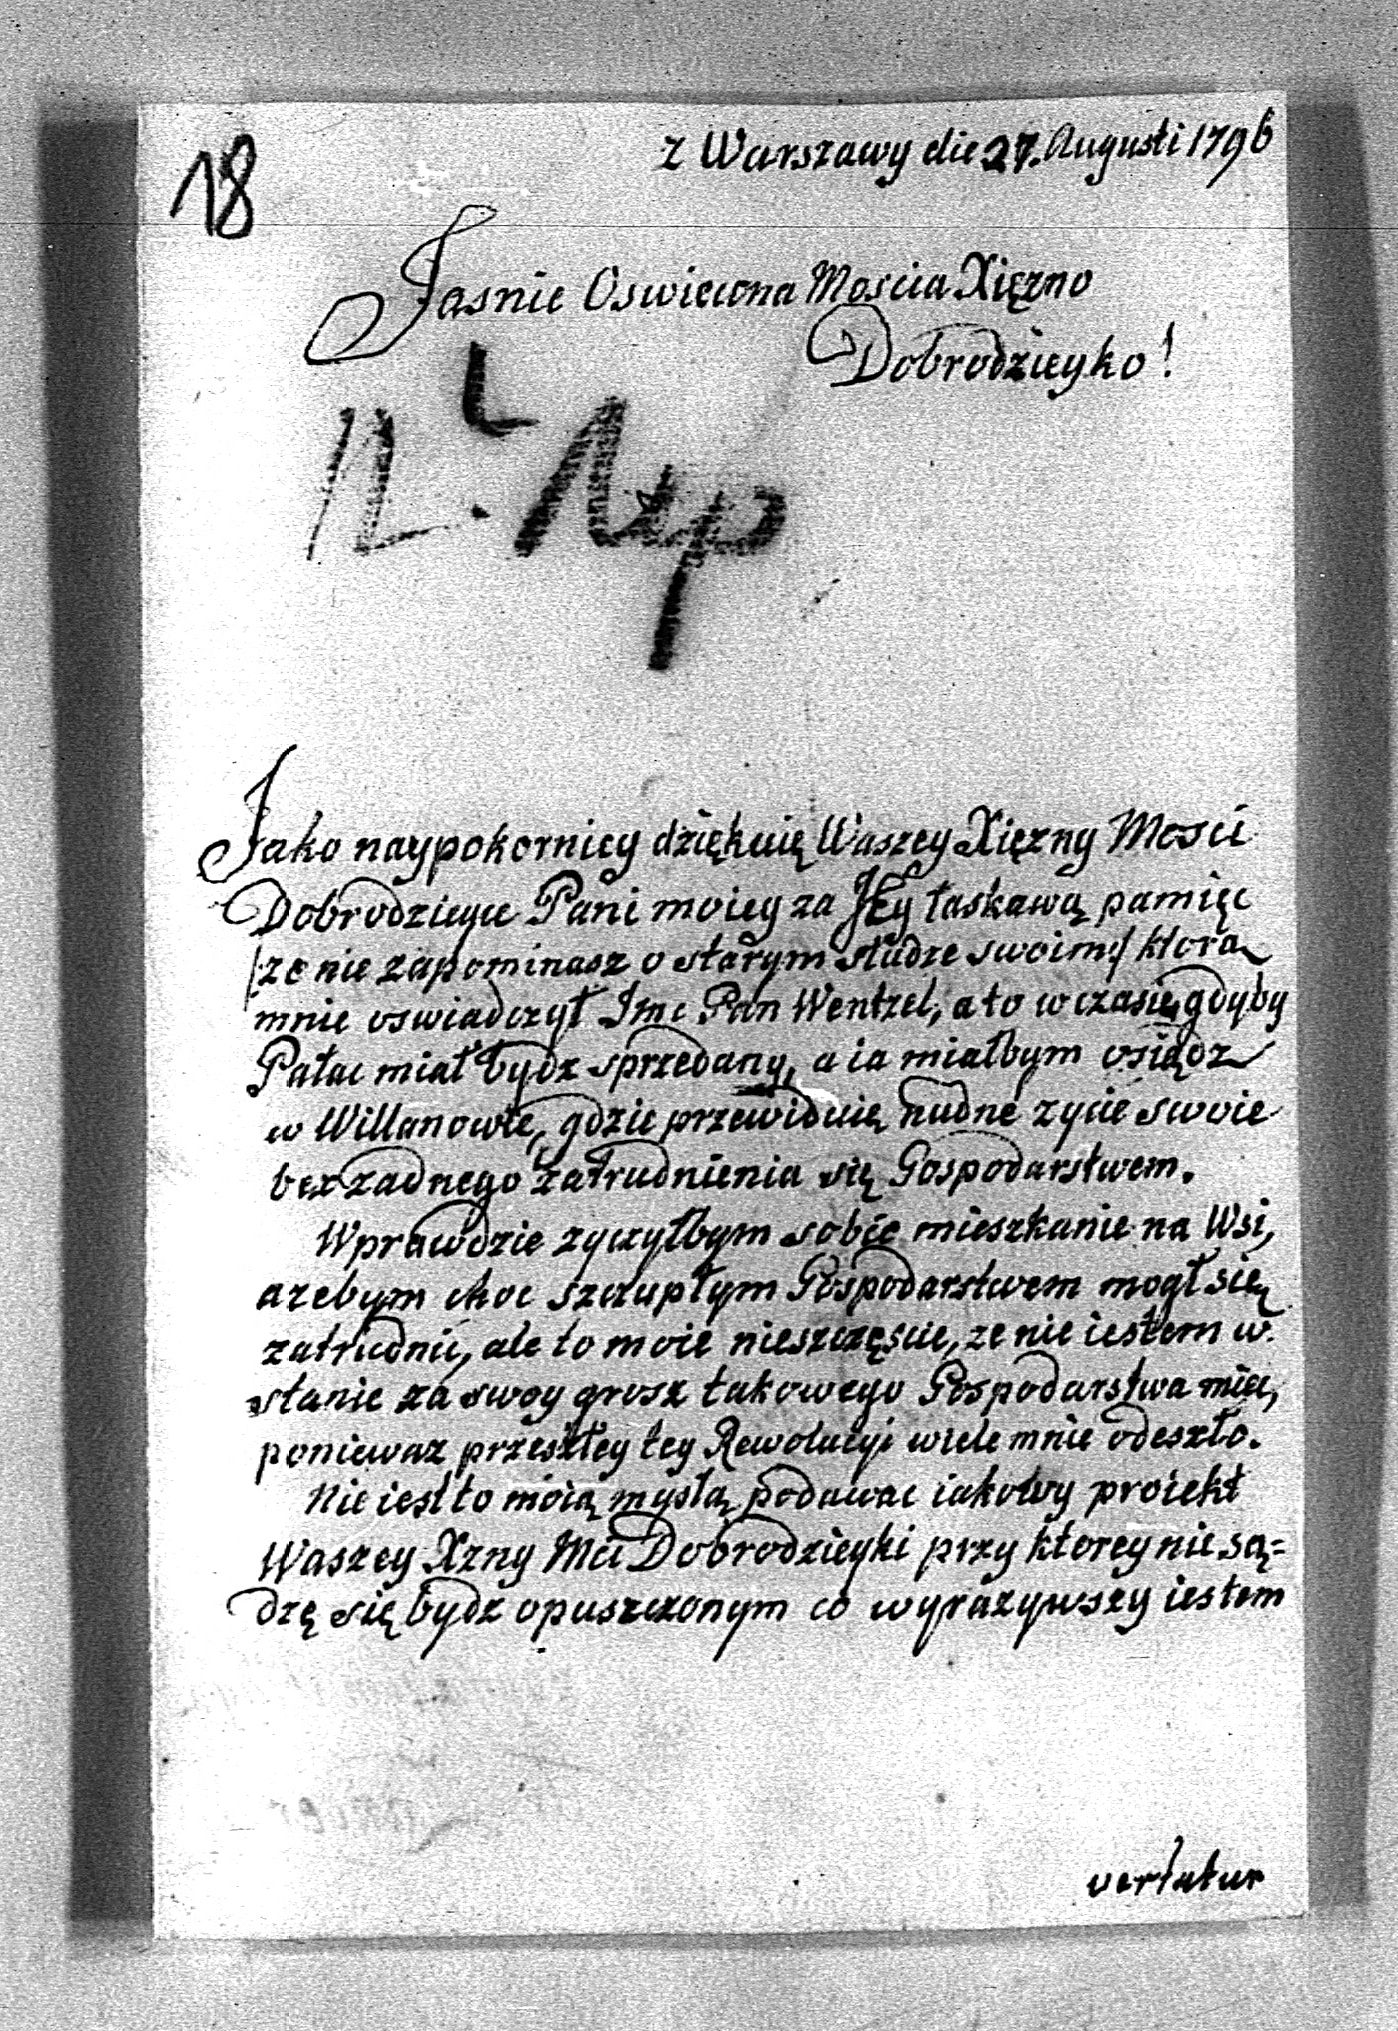 18
z Warszawy die 27. Augusti 1796
Jasnie Oswiecona Moscia Xięzno
Dobrodzieyko!
Jako naypokorniey dziękuię Waszey Xięzny Mosci
Dobrodzieyce Pani moiey za JEy łaskawą pamięc
/:ze nie zapominasz o starym słudze swoim:/ ktorą
mnie oswiadczył Imc Pan Wentzel, a to w czasie, gdyby
Pałac miał bydz sprzedany, a ia miałbym osiądz
w Willanowie, gdzie przewiduię nudne zycie swoie
bez zadnego zatrudnienia się Gospodarstwem.
Wprawdzie zyczyłbym sobie mieszkanie na Wsi,
azebym choc szczupłym Gospodarstwem mogł się
zatrudnic, ale to moie nieszczęscie, ze nie iestem w
stanie za swoy grosz takowego Gospodarstwa miec,
poniewaz przeszłey tey Rewolucyi wiele mnie odeszło.
Nie iest to moią myslą podawac iakowy proiekt
Waszey Xzny Mci Dobrodzieyki przy ktorey nie są=
dzę się bydz opuszczonym co wyrazywszy iestem
vertatur